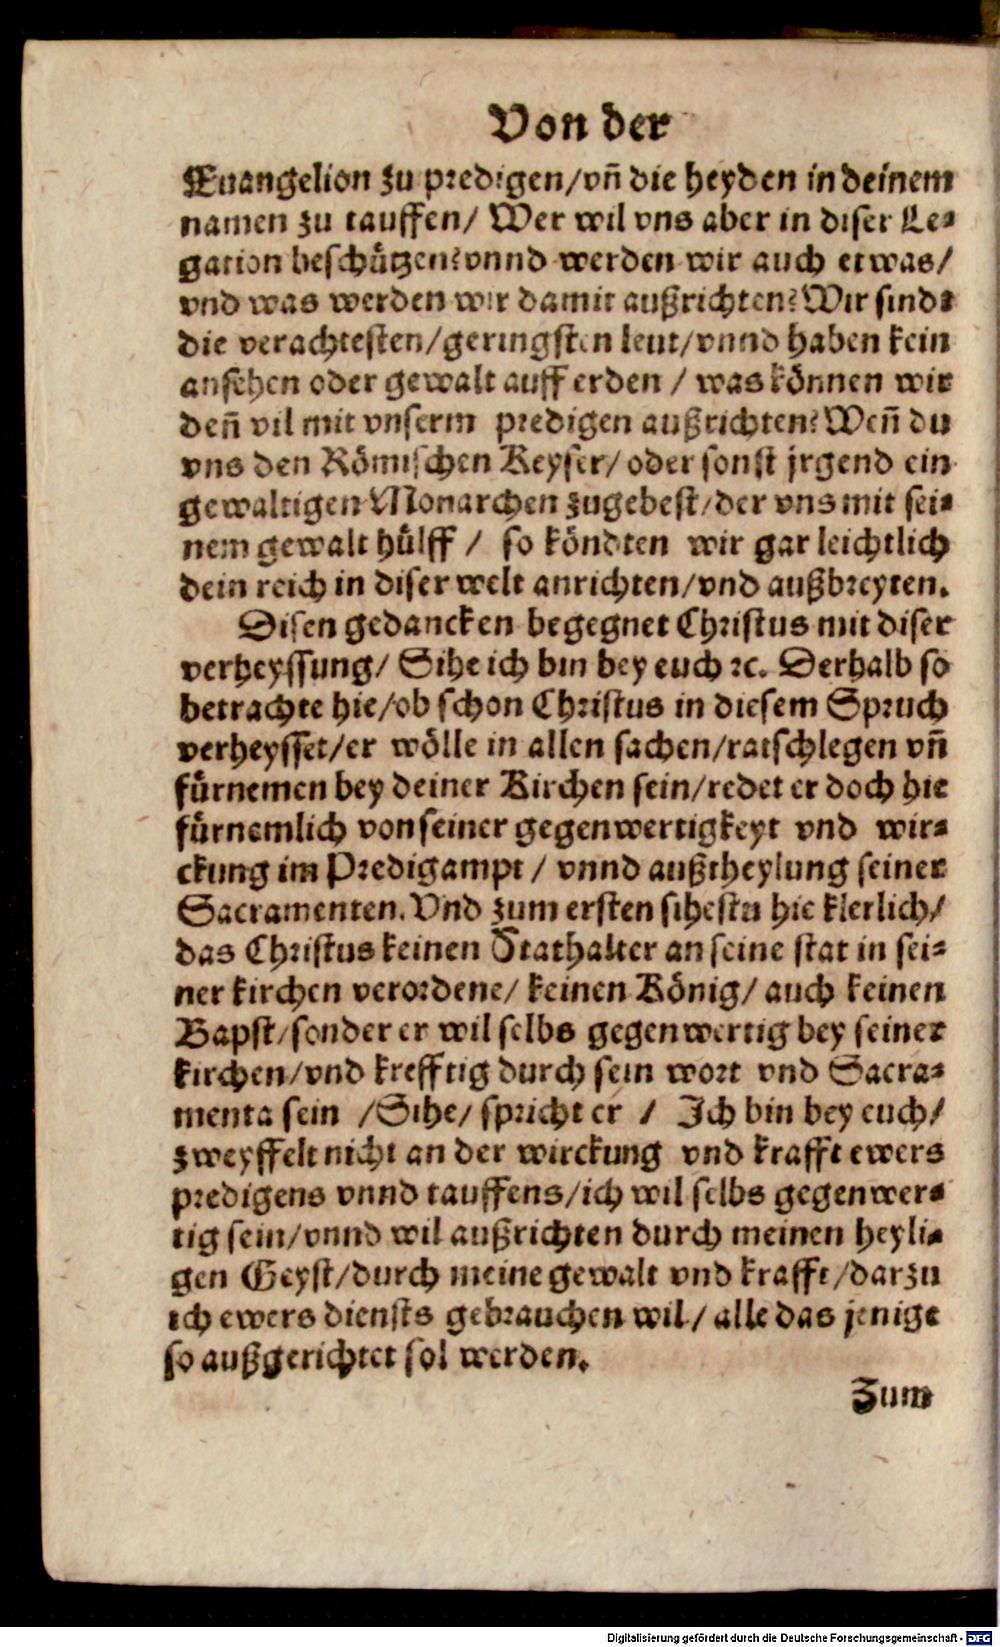 Von der
Euangelion zu predigen/vñ die heyden in deinem
namen zu tauffen/ Wer wil vns aber in diser Le-
gation beschützen?vnnd werden wir auch etwas/
vnd was werden wir damit außrichten?Wir sind-
die verachtesten/geringsten leut/vnnd haben kein
ansehen oder gewalt auff erden / was können wir
deñ vil mit vnserm predigen außrichten?Weñ du
vns den Römischen Keyser/ oder sonst jrgend ein
gewaltigen Monarchen zugebest/der vns mit sei-
nem gewalt hülff / so köndten wir gar leichtlich
dein reich in diser welt anrichten/vnd außbreyten.
Disen gedancken begegnet Christus mit diser
verheyssung/ Sihe ich bin bey euch ꝛc. Derhalb so
betrachte hie/ob schon Christus in diesem Spruch
verheysset/er wölle in allen sachen/ratschlegen vñ
fürnemen bey deiner Kirchen sein/redet er doch hie
fürnemlich von seiner gegenwertigkeyt vnd wir-
ckung im Predigampt / vnnd außtheylung seiner
Sacramenten. Vnd zum ersten sihestu hie klerlich/
das Christus keinen Stathalter an seine stat in sei-
ner kirchen verordene/ keinen König/ auch keinen
Bapst/sonder er wil selbs gegenwertig bey seiner
kirchen/vnd krefftig durch sein wort vnd Sacra-
menta sein /Sihe/ spricht er / Ich bin bey euch/
zweyffelt nicht an der wirckung vnd krafft ewers
predigens vnnd tauffens/ich wil selbs gegenwer-
tig sein/vnnd wil außrichten durch meinen heyli-
gen Geyst/durch meine gewalt vnd krafft/darzu
ich ewers diensts gebrauchen wil/ alle das jenige
so außgerichtet sol werden.
Zum
Digitalisierung gefördert durch die Deutsche Forschungsgemeinschaft - DFG